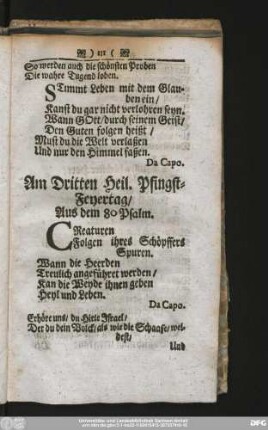 ) 111 (
So werden auch die schönsten Proben
Die wahre Tugend loben.
STimmt Leben mit dem Glau-
ben ein/
Kanst du gar nicht verlohren seyn.
Wann GOtt/durch seinem Geist/
Den Guten folgen heißt/
Must du die Welt verlaßen
Und nur den Himmel faßen.
Da Capo.
Am Dritten Heil. Pfingst-
Feyertag/
Aus dem 80 Psalm.
CReaturen
Folgen ihres Schöpffers
Spuren.
Wann die Heerden
Treulich angeführet werden/
Kan die Weyde ihnen geben
Heyl und Leben.
Da Capo.
Erhöre uns/ du Hirte Israel/
Der du dein Volck/ als wie die Schaafe/ wei-
dest/
Und